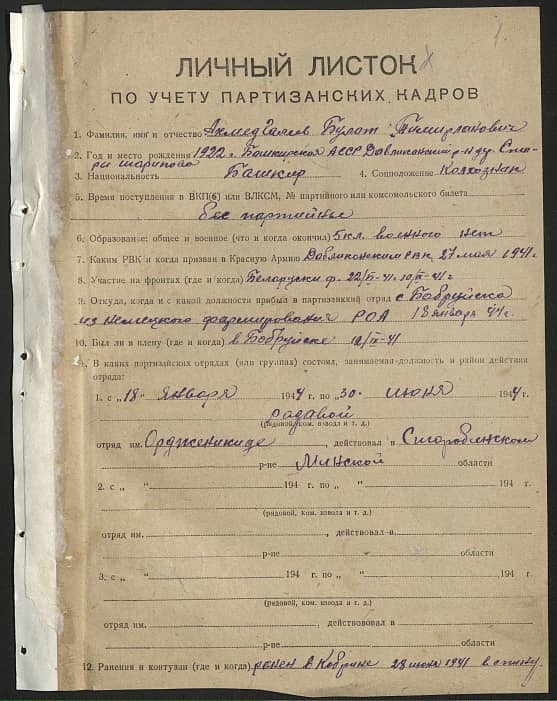 1.
ЛИЧНЫЙ ЛИСТОК
ПО УЧЕТУ ПАРТИЗАНСКИХ КАДРОВ
1. Фамилия, имя и отчество Ахмедгалеев Булат Тимирланович
2. Год и место рождения 1922 г. Башкирская АССР Давликанский р-н ду. Ста-
ры шарипово
3. Национальность Башкир 4. Соцположение Колхозник
5. Время поступления в ВКП(б) или ВЛКСМ, № партийного или комсомольского билета
бес партийные
6. Образование: общее и военное (что и когда окончил) 5 кл. военного нет
7. Каким РВК и когда призван в Красную Армию Давликонским рвк 27 мая 1941.
8. Участие на фронтах (где и когда) Беларуски ф. 22/VI-41.
9. Откуда, когда и с какой должности прибыл в партизанский отряд с Бобруйска
из немецкого формирования РОА 18 января 44 г.
10. Был ли в плену (где и когда) в Бобруйске
В каких партизайских отрядах (или группах) состоял, занимаемая должность и район действия
отряда:
1. с „18" января 1944 г. по „30" июня 1944 г.
радавой
(рядовой, ком. взвода и т. д.)
отряд им. Ордженикидзе, действовал в Старобинском
р-не Минской области
2. с „ " 194 г. по „ " 194 г.
(рядовой, ком. взвода и т. д.)
отряд им. , действовал в
р-не области
3. с „ " 194 г. по „ " 194 г.
(рядовой, ком. взвода и т. д.)
отряд им. , действововал в
р-не области
12. Ранения и контузии (где и когда) ранен в Кобрине 28 июня 1941 в спину